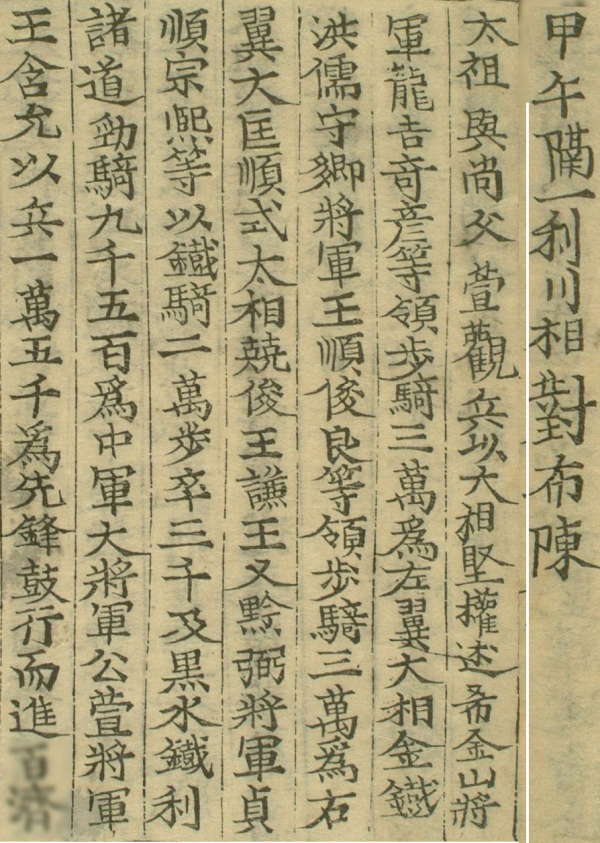 甲午隔一利川相對布陳
太祖與尙父萱觀兵以大相堅權述希金山將
軍龍吉奇彦等領步騎三萬爲左翼大相金鐵
洪儒守鄕將軍王順俊良等領步騎三萬爲右
翼大匡順式大相兢俊王謙王乂黔弼將軍貞
順宗熙等以鐵騎二萬步卒三千及黑水鐵利
諸道勁騎九千五百爲中軍大將軍公萱將軍
王含允以兵一萬五千爲先鋒鼓行而進